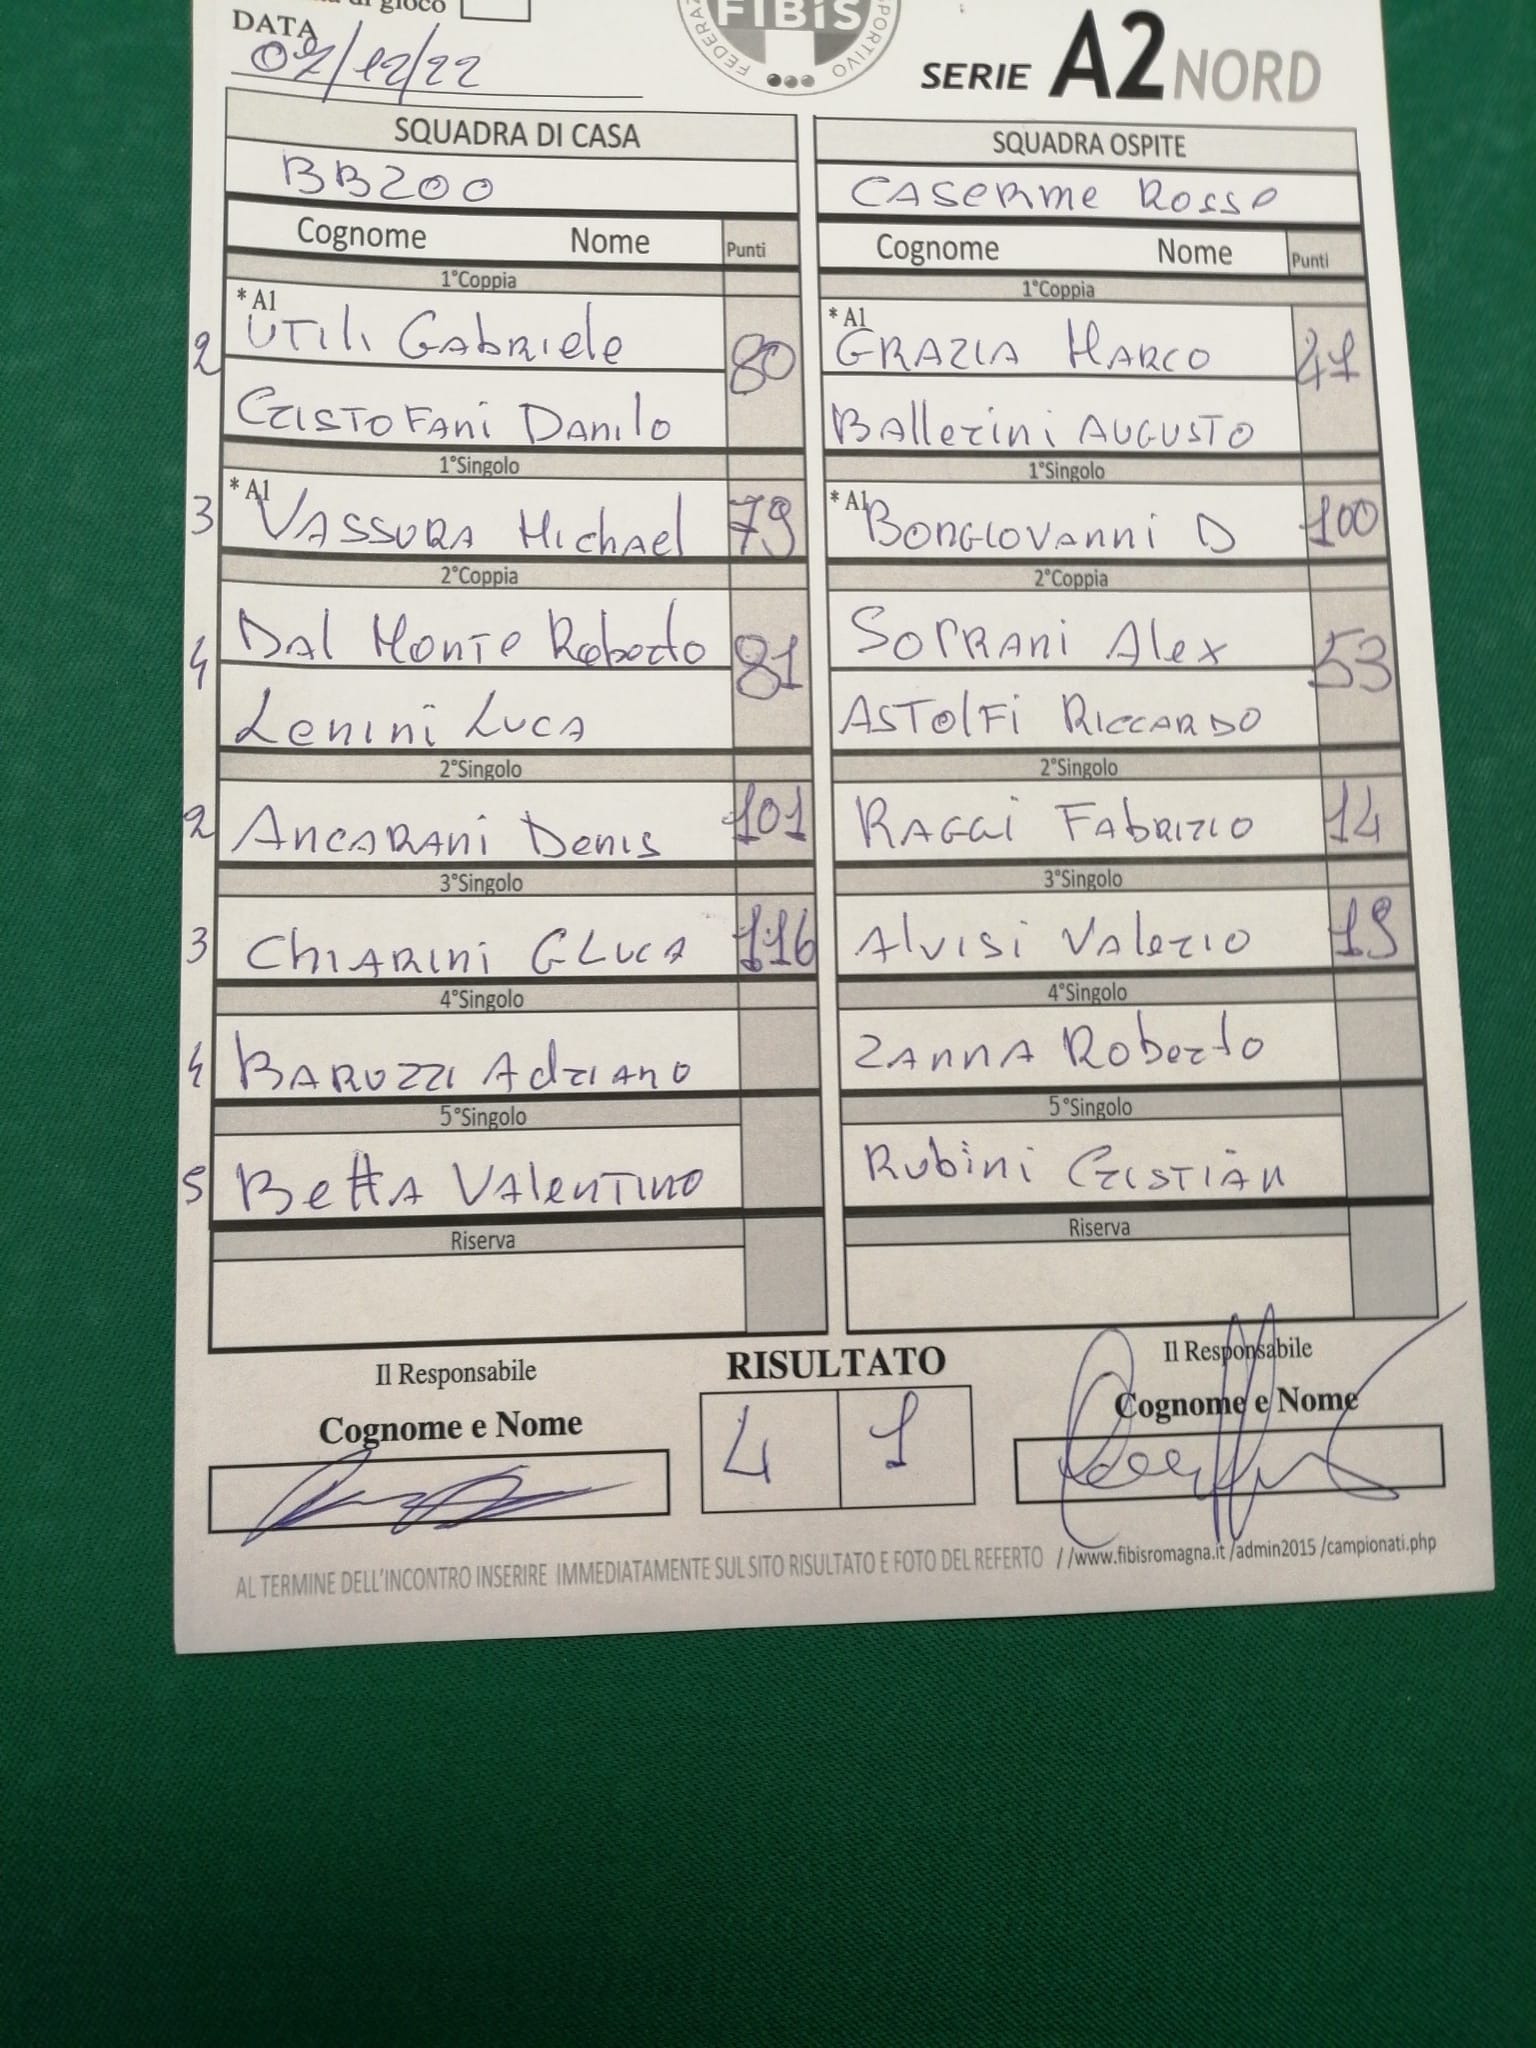 di gioco
DATA
07/12/22
FIBiS
SPORTIVO
SERIE A2 NORD
SQUADRA DI CASA
BB200
Cognome Nome Punti
1°Coppia
*A1
UTILI GABRIELE 80
2
CRISTOFANI DANILO
1°Singolo
*A1
3 VASSURA MICHAEL 79
2°Coppia
DAL MONTE ROBERTO 81
4
LENINI LUCA
2°Singolo
2 ANCARANI DENIS 101
3°Singolo
3 CHIARINI GLUCA 116
4°Singolo
4 BARUZZI ADRIANO
5°Singolo
5 BETTA VALENTINO
Riserva
SQUADRA OSPITE
CASERME ROSSE
Cognome Nome Punti
1°Coppia
*A1
GRAZIA MARCO 41
BALLERINI AUGUSTO
1°Singolo
*A1
BONGIOVANNI D 100
2°Coppia
SORRANI ALEX 53
ASTOLFI RICCARDO
2°Singolo
RAGGI FABRIZIO 14
3°Singolo
ALVISI VALERIO 19
4°Singolo
ZANNA ROBERTO
5°Singolo
RUBINI CRISTIAN
Riserva
Il Responsabile
Cognome e Nome
RISULTATO
4 1
Il Responsabile
Cognome e Nome
AL TERMINE DELL'INCONTRO INSERIRE IMMEDIATAMENTE SUL SITO RISULTATO E FOTO DEL REFERTO //www.fibisromagna.it/admin2015/campionati.php